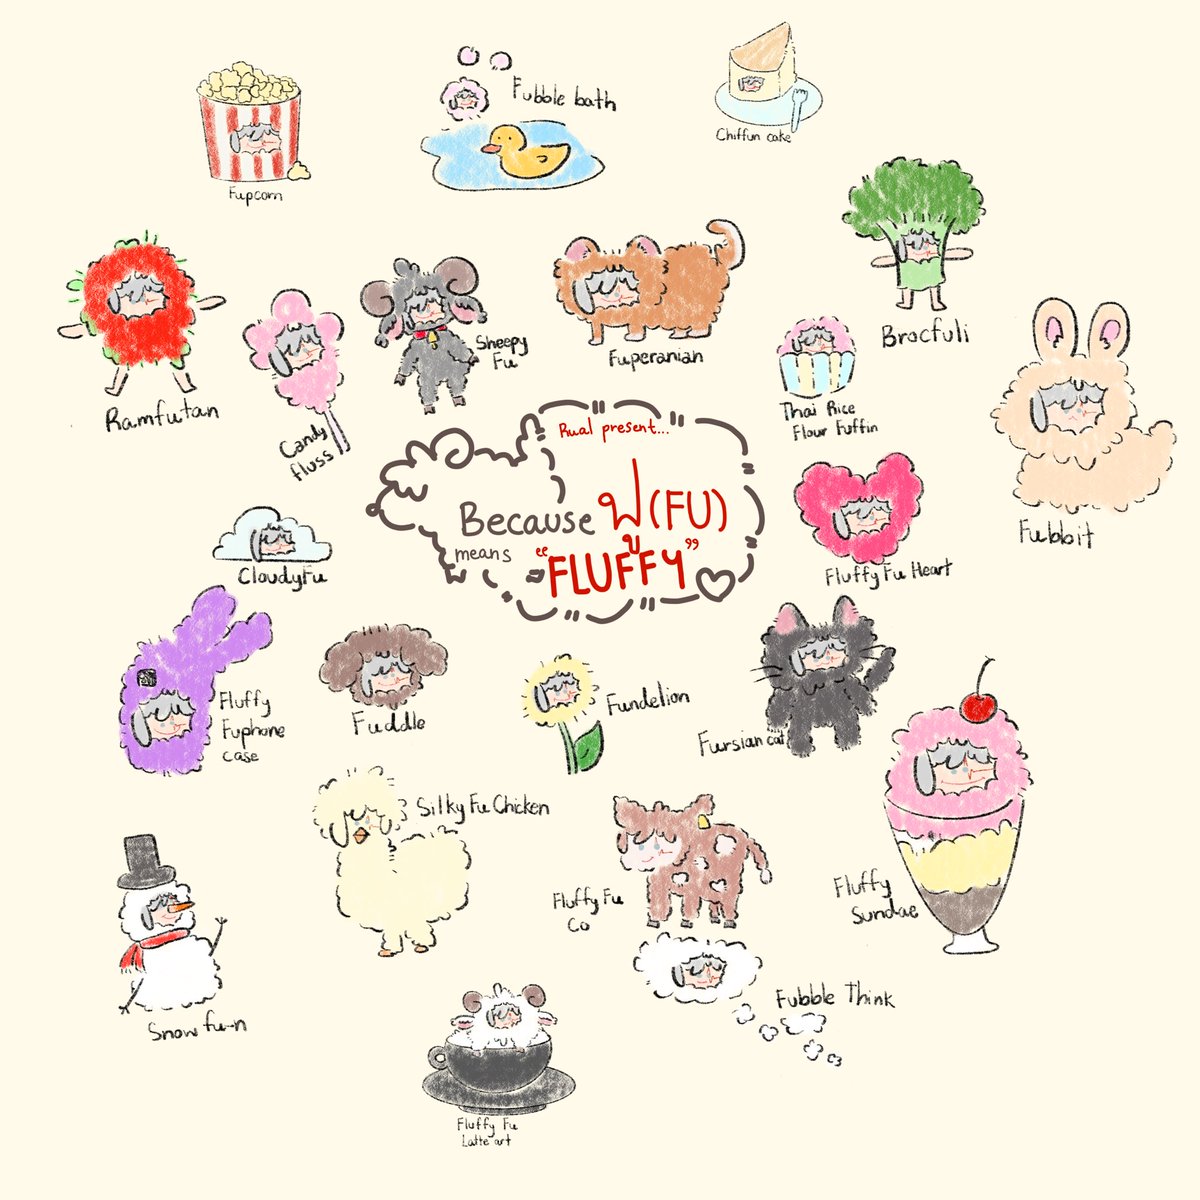 Fupcorn
Fubble bath
Chiffun cake
Ramfutan
Candy
fluss
Sheepy
Fu
Fuperanian
Brocfuli
Thai Rice
Flour Fuffin
Fubbit
Rual present...
Because ฟู (FU)
means "FLUFFY"
CloudyFu
Fluffy Fu Heart
Fluffy
Fuphone
case
Fuddle
Fundelion
Fursian cat
Silky Fu Chicken
Fluffy Fu
Co
Fluffy
Sundae
Snow fu-n
Fubble Think
Fluffy Fu
Latte art